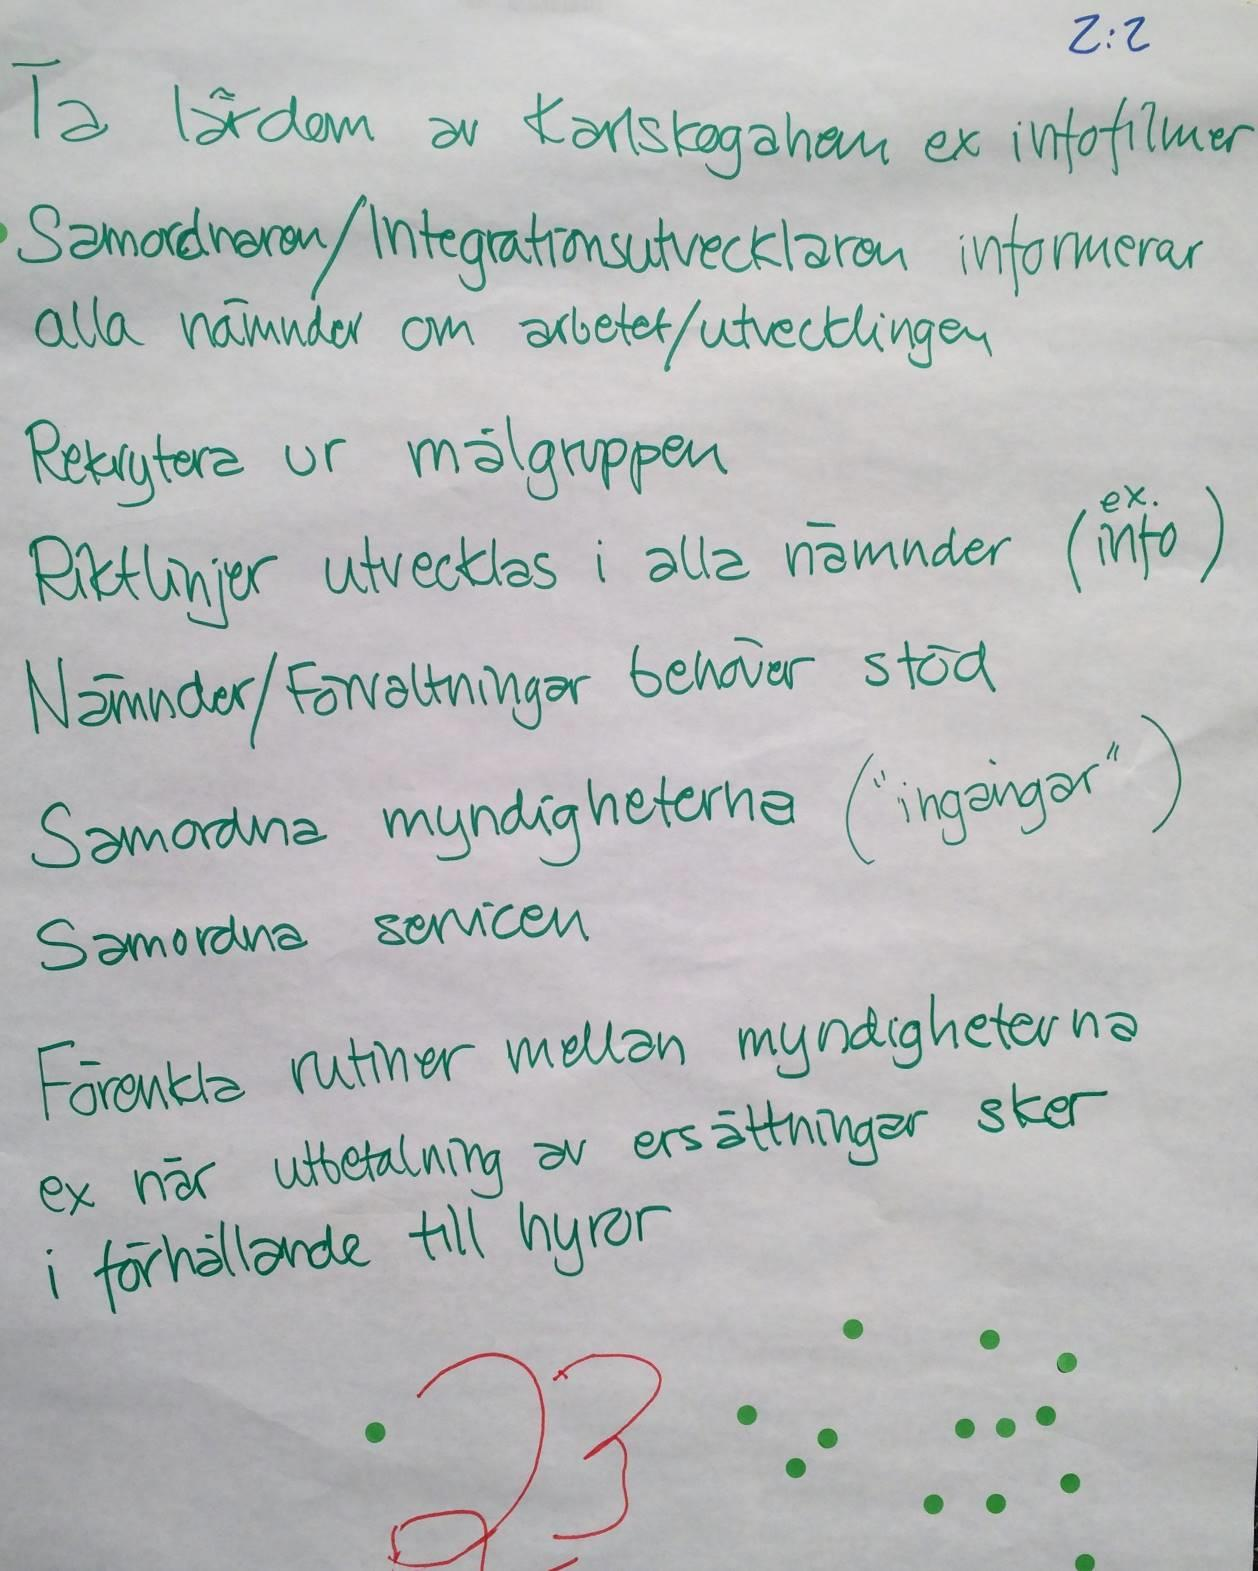 2:2
Ta lärdom av Karlskogahem ex infofilmer
Samordnaren/Integrationsutvecklaren informerar
alla nämnder om arbetet/utvecklingen
Rekrytera ur målgruppen
Riktlinjer utvecklas i alla nämnder (ex. info)
Nämnder/Förvaltningar behöver stöd
Samordna myndigheterna ("ingångar")
Samordna servicen
Förenkla rutiner mellan myndigheterna
ex när utbetalning av ersättningar sker
i förhållande till hyror
23